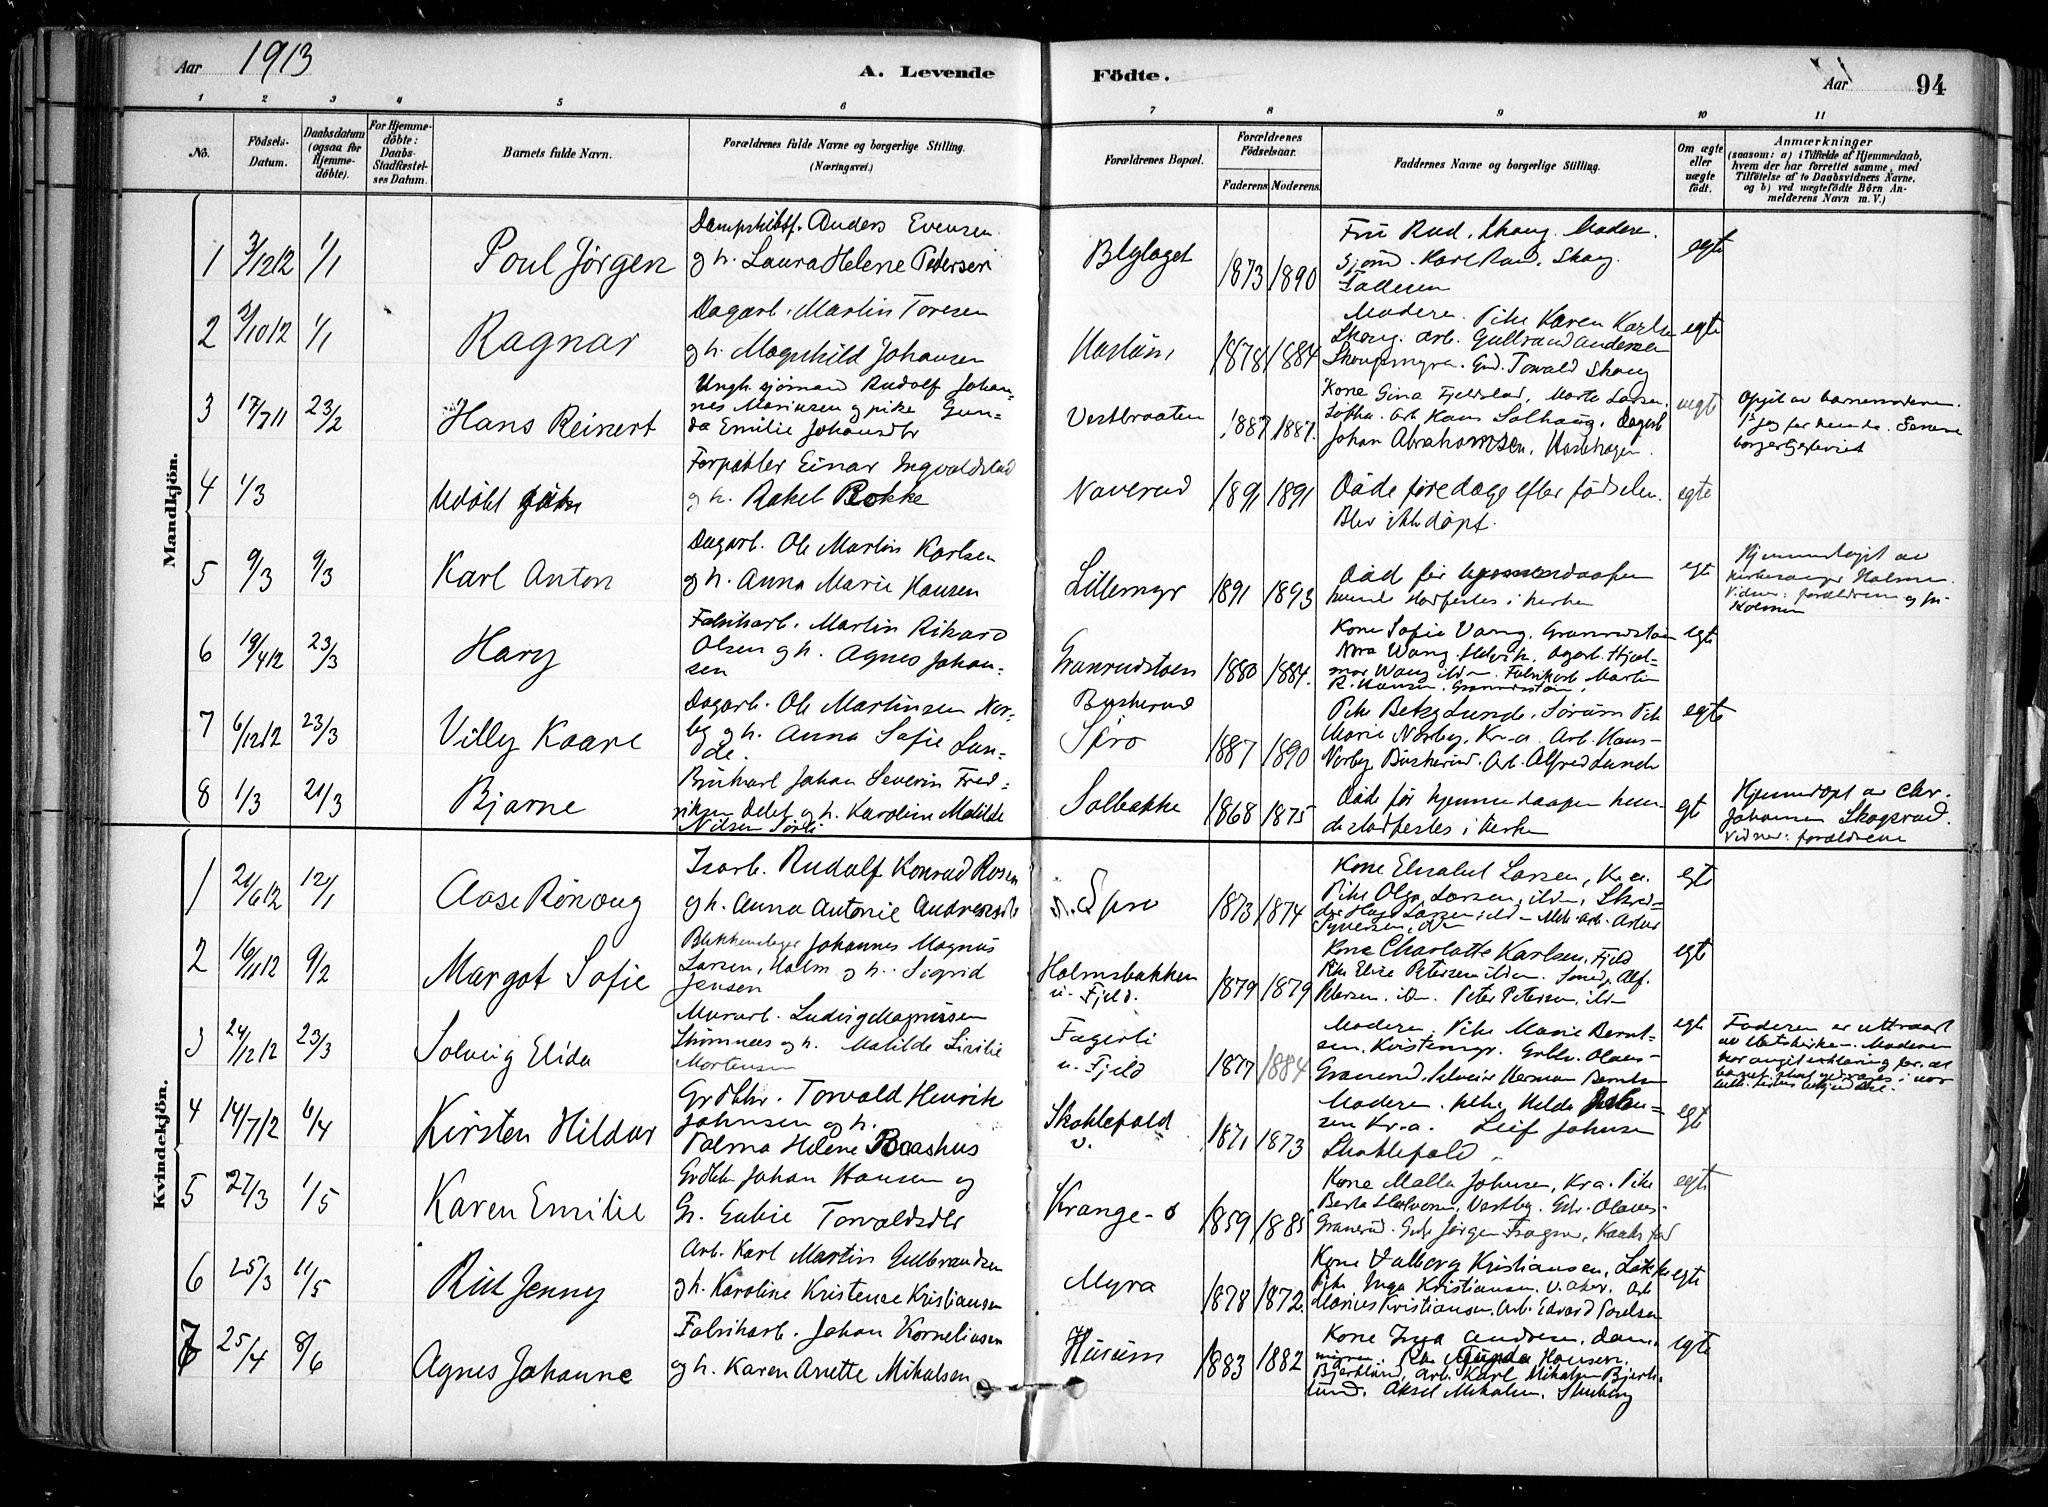 Aar 1913
A. Levende
Födte.
Aar
94
1 2 3 4 5 6 7 8 9 10 11
No.
Födsels-Datum.
Daabsdatum (ogsaa for Hjemme-döbte).
For Hjemme-döbte: Daabs-Stadfæstel-ses Datum.
Barnets fulde Navn.
Forældrenes fulde Navne og borgerlige Stilling. (Næringsvei.)
Forældrenes Bopæl.
Forældrenes Födselsaar.
Faderens. Moderens.
Faddernes Navne og borgerlige Stilling.
Om ægte eller uægte födt.
Anmærkninger
(saasom: a) i Tilfælde af Hjemmedaab, hvem der har forrettet samme, med Tilföielse af to Daabsvidners Navne. og b) ved uægtefödte Börn An-melderens Navn m. V.)
Mandkjön.
1 3/12 12 1/1 Poul Jörgen
Anders Evensen
og h. Laura Helene Pedersen
1873 1890
Karl Rud. Skaug.
Fadderen
egte
2 2/10 12 1/1 Ragnar
Dagarb. Martin Toresen
og h. Magnhild Johansen
1878 1884
Moderen. Pike Karen Karlsen
Skaug. arb. Gulbrand Andersen
Torvald Skaug
egte
3 17/7 11 23/2 Hans Reinert
Ungk. sjömand Rudolf Johan-
nes Marinsen og pike Gun-
da Emilie Johansdtr
Vestbraaten 1887 1887.
Kone Gina Fjeldstad, Marte Larsen.
Arb. Hans Solhaug. Dagarb
Johan Abrahamsen,
uegte
Opgit av barnemoderen.
4 1/3 Udöbt
Forpakter Einar Ingvaldstad
og h. Rakel Bakke
Naverud 1891 1891
Döde föredage efter födselen.
Blev ikke döpt.
egte
5 9/3 9/3 Karl Anton
Dagarb. Ole Martin Karlsen
og h. Anna Marie Hansen
Lillemyr 1891 1893
Död för hjemmedaapen
kunde stadfestes i kirke
egt
Hjemmedøpt av
kirkesanger Holmen.
Vidner: forældrene og fru
Holmen
6 19/4 12 23/3 Hary
Fabrikarb. Martin Rikard
Olsen og h. Agnes Johan-
sen
Granrudstøen 1880 1884.
Kone Sofie Vang. Granrudstöen
Nora Wang. Dagarb. Hjal-
mar Wang ildm. Fabrikarb Martin
R. Hansen. Granrudstöen.
egte
7 6/12 12 23/3 Villy Kaare
Dagarb. Ole Martinsen Nor-
by og h. Anna Sofie Lun-
de.
Buskerud
Spro 1887 1890
Pike Betzy Lunde. Sörum Pike
Marie Norby, Kr-a. Arb. Hans
Norby Buskerud. Arb. Alfred Lunde
egte
8 1/3 21/3 Bjarne
Johan Severin Fred-
riksen Delet og h. Karoline Matilde
Nilsen
Solbakke 1868 1875
Död för hjemmedaapen kun-
de stadfestes i kirke
egt
Hjemmedöpt av Chr.
Johansen Skogsrud.
Vidner: forældrene
Kvindekjön.
1 21/6 12 12/1 Aase Rönaug
Isarb. Rudolf Konrad Rosen
og h. Anna Antonie Andreasdtr
n. Spro 1873 1874
Kone Elisabet Larsen, Kr. a.
Pike Olga Larsen, ildm, Skred-
der Larsen, ildm Mek. arb. Artur
Syversen, ildm
egte
2 16/11 12 9/2 Margot Sofie
Blikkenslager Johannes Magnus
Larsen, Holm og h. Sigrid
Jensen
Holmsbakken
u. Fjeld. 1879 1879
Kone Charlotte Karlsen, Fjeld
Pike Elise Petersen ildm. Smed Alf.
Petersen. ildm. Peter Petersen, ildm
egt
3 24/12 12 23/3 Solveig Elida
Murarb. Ludvig Magnussen
Strömnes og h. Matilde Sicilie
Mortensen
Fagerli
u. Fjeld 1877 1884
Moderen, Pike Marie Bernt-
sen, Kristemyr. Grbr. Olaus
Granerud. Herman Berntsen
egt
Faderen er uttraadt
av statskirken. Moderen
har avgit erklæring for. at
barnet skal opdrages i vor
4 14/7 12 6/4 Kirsten Hildur
Grdbr. Torvald Henrik
Johnsen og h.
Palma Helene Baashus
Skoklefald
v. 1871 1873
Moderen. Pike Hilda
sen Kr. a. Leif Johnsen
Skoklefald.
egt
5 27/3 1/5 Karen Emilie
Grdbr. Johan Hansen og
h. Gubie Torvaldsdtr
Krange-ö 1859 1885
Kone Malla Johnsen, Kr.a. Pike
Berta Halvorsen, Vestby. Grbr. Olaves
Granerud. Grbr Jörgen Fragne,
egte
6 25/3 11/5 Rut Jenny
Arb. Karl Martin Gulbrandsen
og h. Karoline Kristense Kristiansen
Myra 1878 1872.
Kone Valborg Kristiansen, Løkke
Pike Inga Kristiansen. V. Aker. Arb
Marius Kristiansen. Arb. Edvard Paulsen
egte
7 25/4 8/6 Agnes Johanne
Fabrikarb. Johan Kornelinsen
og h. Karen Anette Mikalsen
Husum 1883 1882
Kone Inga Andresen, Dam-
myren. Pike Gunda Hansen,
Bjerklund, arb. Karl Mikalsen Bjerk-
lund. Aksel Mikalsen.
egte